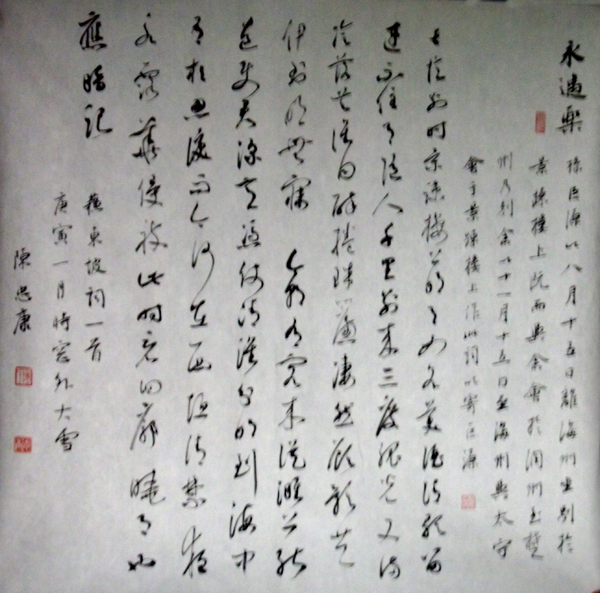 永遇樂 孫巨源以八月十五日離海州坐別於
景疎樓上既而與余會於潤州至楚
州乃別余以十一月十五日至海州與太守
會于景疎樓上作此詞以寄巨源
長憶別時景疎樓上明月如水美酒清歌留
連不住月隨人千里別來三度孤光又滿
冷落共誰同醉捲珠簾凄然顧影共
伊到明無寐 今朝有客來從濉上能
道使君深意憑仗清淮分明到海中
有相思淚而今何在西垣清禁夜
永露華侵被此時看回廊曉月也
應暗記
蘇東坡詞一首
庚寅一月時窗外大雪
陳忠康